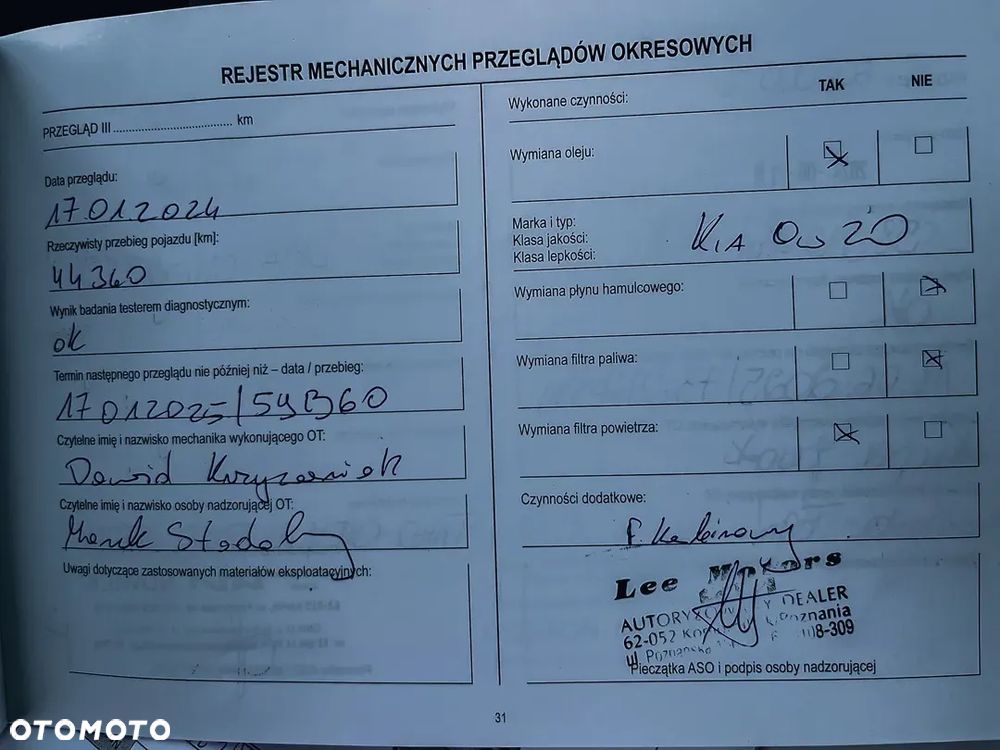 REJESTR MECHANICZNYCH PRZEGLĄDÓW OKRESOWYCH
PRZEGLĄD III ...................................... km
Data przeglądu:
17.01.2024
Rzeczywisty przebieg pojazdu [km]:
44360
Wynik badania testerem diagnostycznym:
ok
Termin następnego przeglądu nie później niż – data / przebieg:
17012025/59360
Czytelne imię i nazwisko mechanika wykonującego OT:
Dawid
Czytelne imię i nazwisko osoby nadzorującej OT:
Marek
Uwagi dotyczące zastosowanych materiałów eksploatacyjnych:
Wykonane czynności:
TAK
NIE
Wymiana oleju:
Marka i typ:
Klasa jakości:
Klasa lepkości:
KIA 0w20
Wymiana płynu hamulcowego:
Wymiana filtra paliwa:
Wymiana filtra powietrza:
Czynności dodatkowe:
f. Kabinowy
Lee Motors
DEALER
62-052
8-309
ul
Pieczątka ASO i podpis osoby nadzorującej
31
OTOMOTO